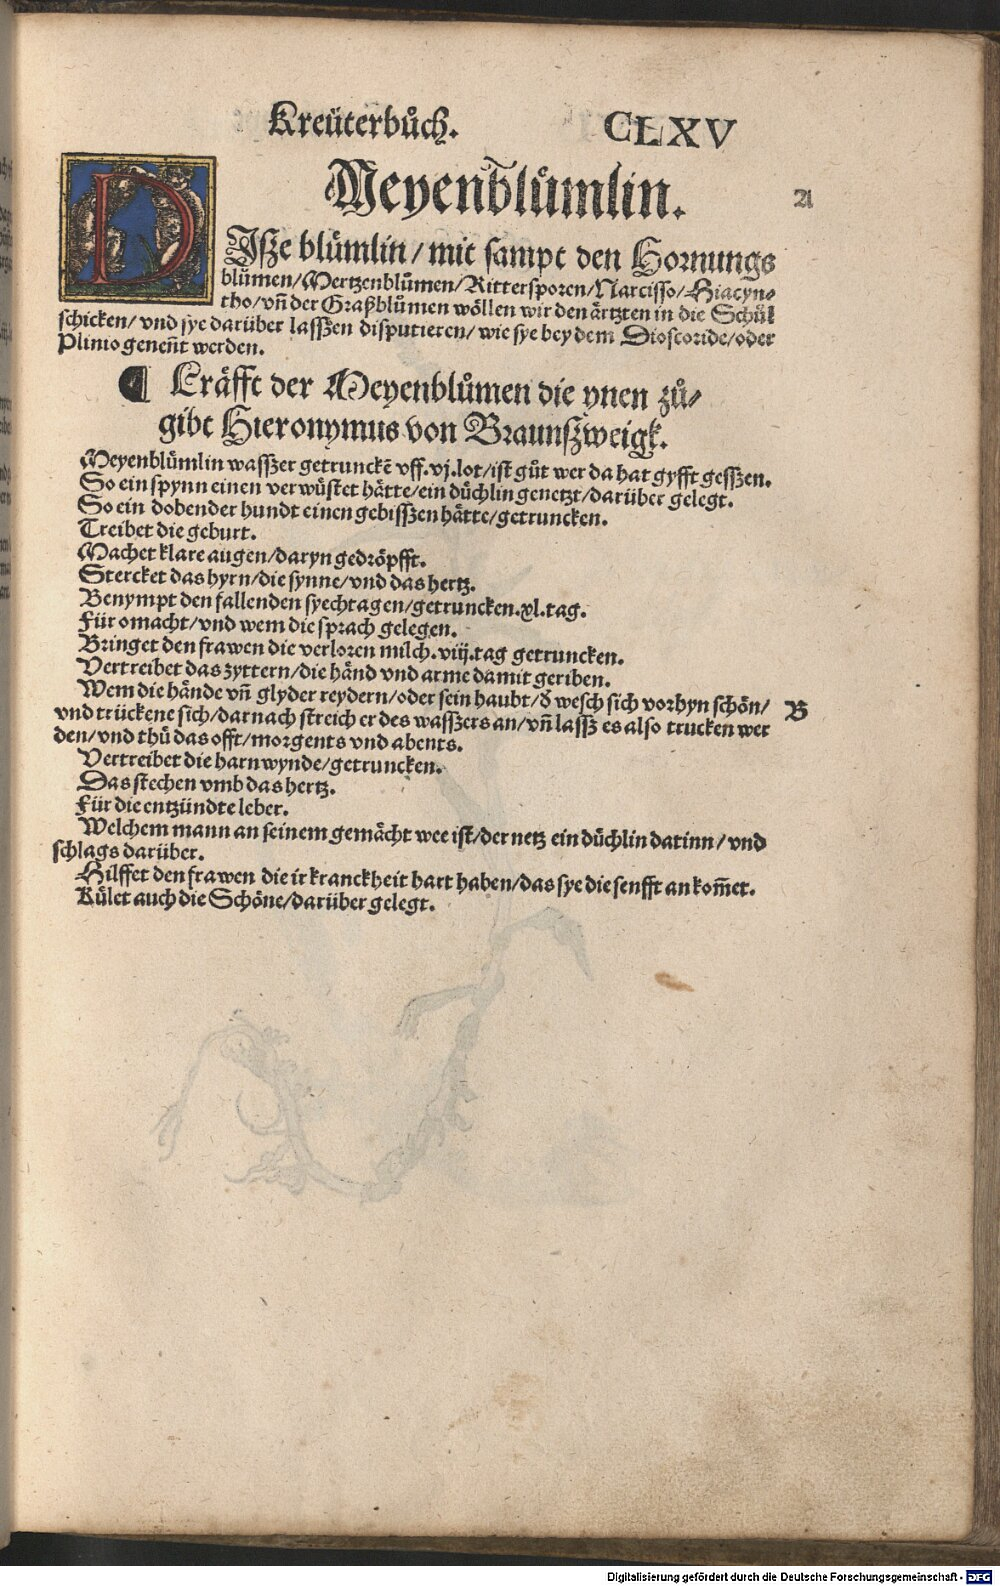 Kreüterbůch. CLXV
Meyenblůmlin. A
DJsze blůmlin/ mit sampt den Hornungs
blůmen/Mertzenblůmen/Rittersporen/Narcisso/Hiacyn⸗
tho/vñ der Graßblůmen wöllen wir den ärtzten in die Schůl
schicken/ vnd sye darüber lasszen disputieren/ wie sye bey dem Dioscoride/oder
Plinio genent̃ werden.
¶ Kräfft der Meyenblůmen die ynen zů⸗
gibt Hieronymus von Braunszweigk.
Meyenblůmlin wasszer getrunckẽ vff.vj.lot/ist gůt wer da hat gyfft gesszen.
So ein spynn einen verwüstet hätte/ein důchlin genetzt/darüber gelegt.
So ein dobender hundt einen gebisszen hätte/getruncken.
Treibet die geburt.
Machet klare augen/daryn gedröpfft.
Stercket das hyrn/die synne/vnd das hertz.
Benympt den fallenden syechtagen/getruncken.xl.tag.
Für omacht/vnd wem die sprach gelegen.
Bringet den frawen die verloren milch.viij.tag getruncken.
Vertreibet das zyttern/die händ vnd arme damit geriben.
Wem die hände vñ glyder reydern/oder sein haubt/đ wesch sich vorhyn schön/ B
vnd trückene sich/darnach streich er des wasszers an/vñ lassz es also trucken wer
den/vnd thů das offt/morgents vnd abents.
Vertreibet die harnwynde/getruncken.
Das stechen vmb das hertz.
Für die entzündte leber.
Welchem mann an seinem gemächt wee ist/der netz ein důchlin darinn/ vnd
schlags darüber.
Hilffet den frawen die ir kranckheit hart haben/das sye die senfft ankom̃et.
Kůlet auch die Schöne/darüber gelegt.
Digitalisierung gefördert durch die Deutsche Forschungsgemeinschaft - DFG